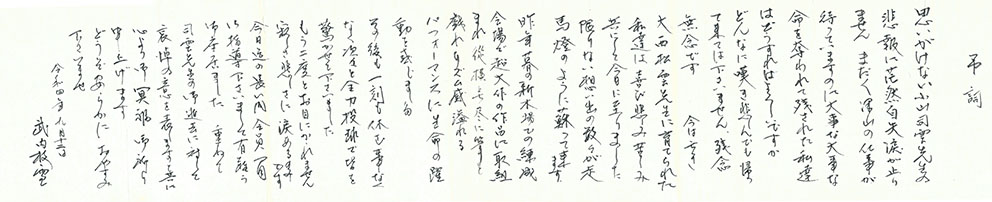 弔詞
思いがけない小山司雲先生の
悲報に茫然自失涙が止り
ません まだまだ沢山の仕事が
待っていますのに大事な大事な
命を奪われて残された私達
はどうすればよいですか
どんなに嘆き悲しんでも帰っ
て来ては下さいません 残念
無念です 今は亡き
大西松雲先生に育てられた
私達は喜び悲み苦しみ
共にし今日に至りました
限りない想い出の数々が走
馬燈のように蘇って来ます
昨年暮の新木場での練成
会場が超大作の作品に取組
まれ 縦横無尽に筆と
戯れリズム感溢れる
パフォーマンスに生命の躍
動を感じました
その後も一刻も休む事なく
次々と全力投球で
驚かせて下さいました
もう二度とお目にかかれません
寂しさ悲しさに涙あるのみです
今日迄の長い間 全員一同
御指導下さいまして有難う
御座居ました 重ねて
司雲先生の御逝去に対して
哀悼の意を表しますと共に
心より御冥福御祈り
申し上げます
どうぞ安らかにおやすみ
下さいませ
令和四年九月十二日
武内枝雲